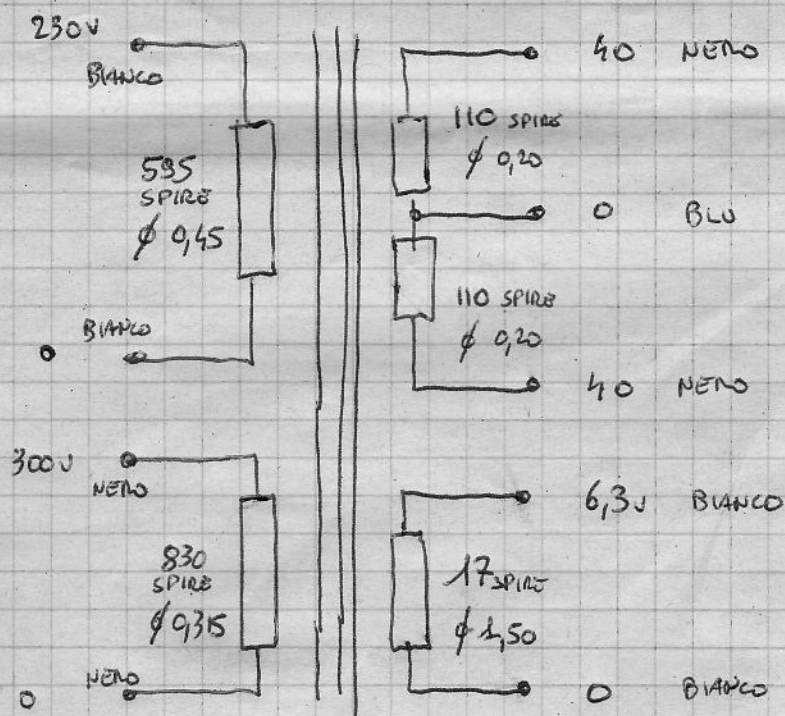 230V
BIANCO
595
SPIRE
ϕ 0,45
BIANCO
0
300V
NERO
830
SPIRE
ϕ 0,315
NERO
0
40 NERO
110 SPIRE
ϕ 0,20
0 BLU
110 SPIRE
ϕ 0,20
40 NERO
6,3V BIANCO
17 SPIRE
ϕ 1,50
0 BIANCO